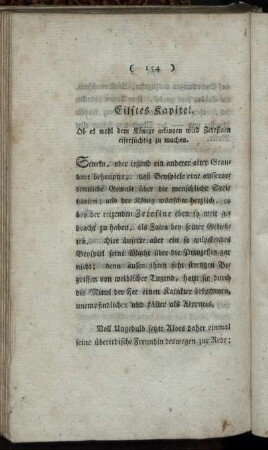 ( 154 )
Eilftes Kapitel.
Ob es wohl dem Könige gelingen wird Zeresinen
eifersüchtig zu machen.
Seneka, oder irgend ein anderer alter
behauptet, daß Beyspiele eine ausseror-
dentliche Gewalt über die menschliche Seele
haben; und der König wünschte herzlich, es
bey der reizenden Zeresine eben so weit ge-
bracht zu haben, als Zaira bey seiner Gebiethe-
rin. Hier äuserte aber ein so
Beyspiel seine Macht über die Prinzeßin gar
nicht; denn auser ihren sehr strengen Be-
griffen von weiblicher Tugend, hatte sie durch
die Mittel der Fee einen Karakter bekommen,
unempfindlicher und kälter als
Voll Ungeduld setzte Aloes daher einmal
seine überirdische Freundin deswegen zur Rede: